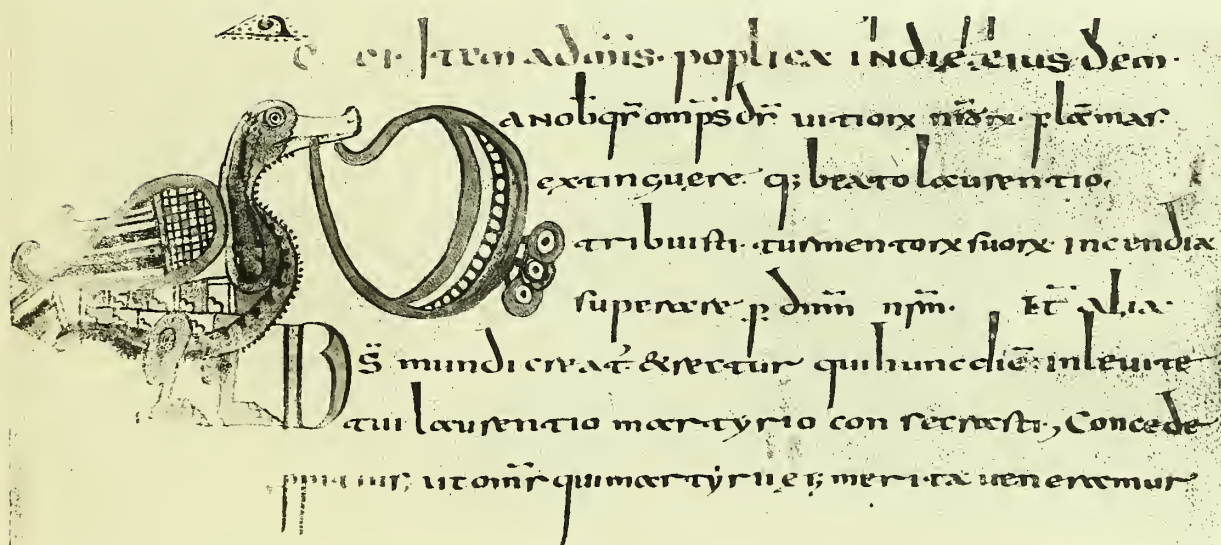 Item ad mis̄. poplica in die eius dem.
Da nob̄ qs̄ omp̄s ds̄ uitioꝝ nr̄oꝝ. flāmas.
extinguere. q; beato laurentio.
tribuisti. turmentoꝝ suoꝝ incendia
superare. p dnm̄ nrm̄. Et alia
DS̄ mundi creat̄. & rectur qui hunc diē. in leuite
tui laurentio martyrio con secrasti, Concede
ppitius; ut om̄s qui martyrii ei; merita ueneramur